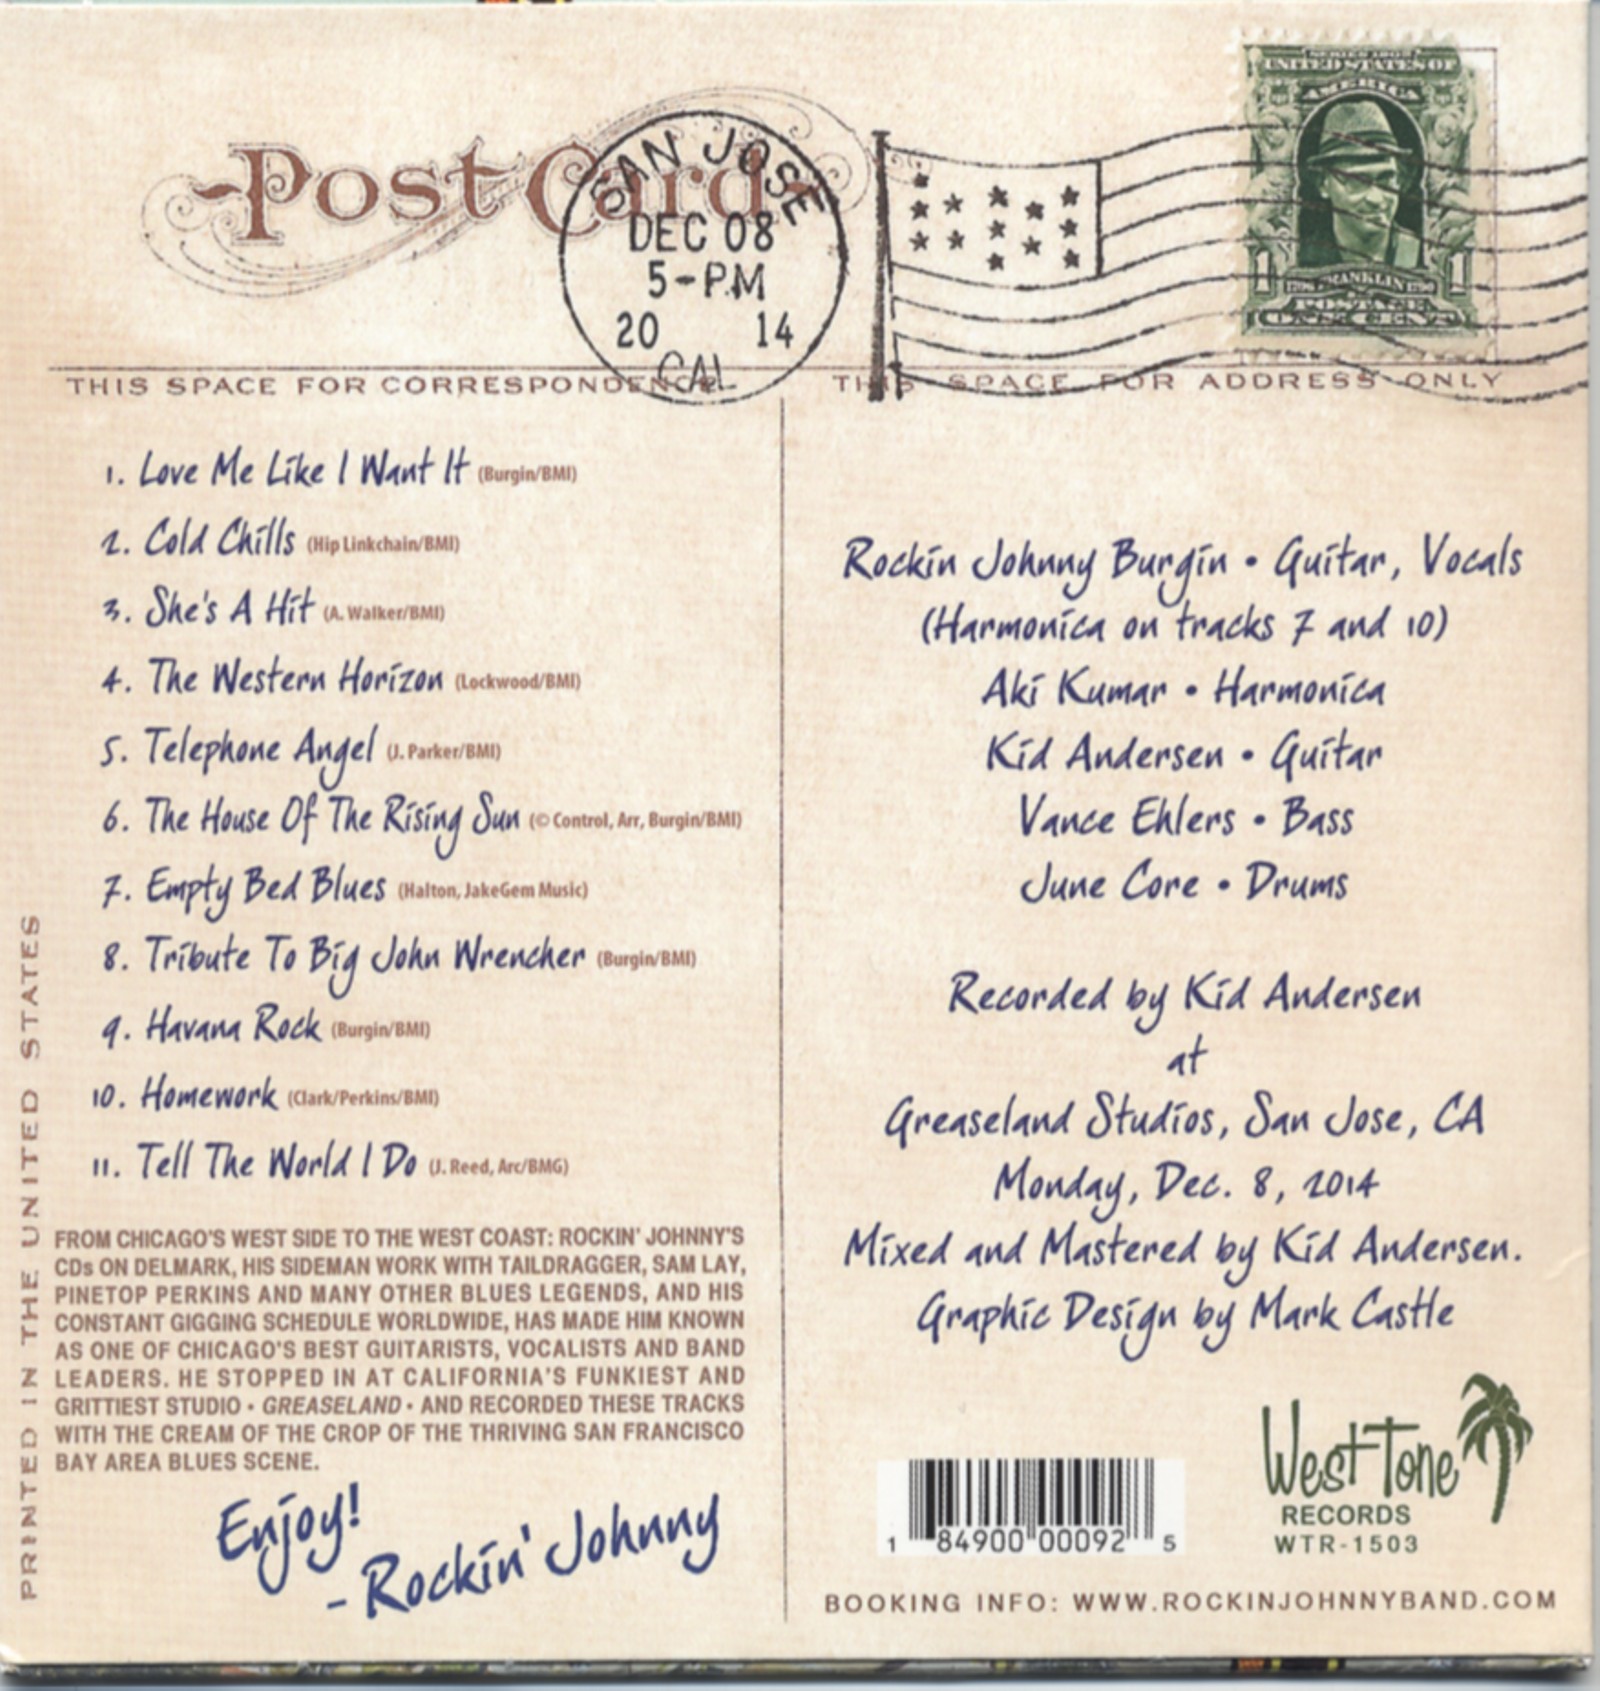 Post Card
SAN JOSE
DEC 08
5-PM
20 14
CAL
SERIES 1902
UNITED STATES OF
AMERICA
1 FRANKLIN 1790 1
POSTAGE
ONE CENT
THIS SPACE FOR CORRESPONDENCE
THIS SPACE FOR ADDRESS ONLY
1. Love Me Like I Want It (Burgin/BMI)
2. Cold Chills (Hip Linkchain/BMI)
3. She's A Hit (A. Walker/BMI)
4. The Western Horizon (Lockwood/BMI)
5. Telephone Angel (J. Parker/BMI)
6. The House Of The Rising Sun (© Control, Arr, Burgin/BMI)
7. Empty Bed Blues (Halton, JakeGem Music)
8. Tribute To Big John Wrencher (Burgin/BMI)
9. Havana Rock (Burgin/BMI)
10. Homework (Clark/Perkins/BMI)
11. Tell The World I Do (J. Reed, Arc/BMG)
FROM CHICAGO'S WEST SIDE TO THE WEST COAST: ROCKIN' JOHNNY'S
CDs ON DELMARK, HIS SIDEMAN WORK WITH TAILDRAGGER, SAM LAY,
PINETOP PERKINS AND MANY OTHER BLUES LEGENDS, AND HIS
CONSTANT GIGGING SCHEDULE WORLDWIDE, HAS MADE HIM KNOWN
AS ONE OF CHICAGO'S BEST GUITARISTS, VOCALISTS AND BAND
LEADERS. HE STOPPED IN AT CALIFORNIA'S FUNKIEST AND
GRITTIEST STUDIO • GREASELAND • AND RECORDED THESE TRACKS
WITH THE CREAM OF THE CROP OF THE THRIVING SAN FRANCISCO
BAY AREA BLUES SCENE.
Enjoy!
- Rockin' Johnny
PRINTED IN THE UNITED STATES
Rockin Johnny Burgin • Guitar, Vocals
(Harmonica on tracks 7 and 10)
Aki Kumar • Harmonica
Kid Andersen • Guitar
Vance Ehlers • Bass
June Core • Drums
Recorded by Kid Andersen
at
Greaseland Studios, San Jose, CA
Monday, Dec. 8, 2014
Mixed and Mastered by Kid Andersen.
Graphic Design by Mark Castle
1 84900 00092 5
West Tone
RECORDS
WTR-1503
BOOKING INFO: WWW.ROCKINJOHNNYBAND.COM